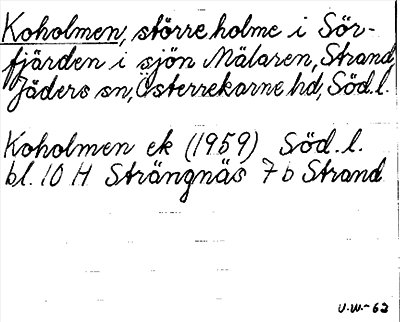 Koholmen, större holme i Sör-
fjärden i sjön Mälaren, Strand
Jäders sn, Österrekarne hd, Söd.l.
Koholmen ek (1959) Söd.l.
bl. 10 H Strängnäs 7 b Strand
U.W.-62